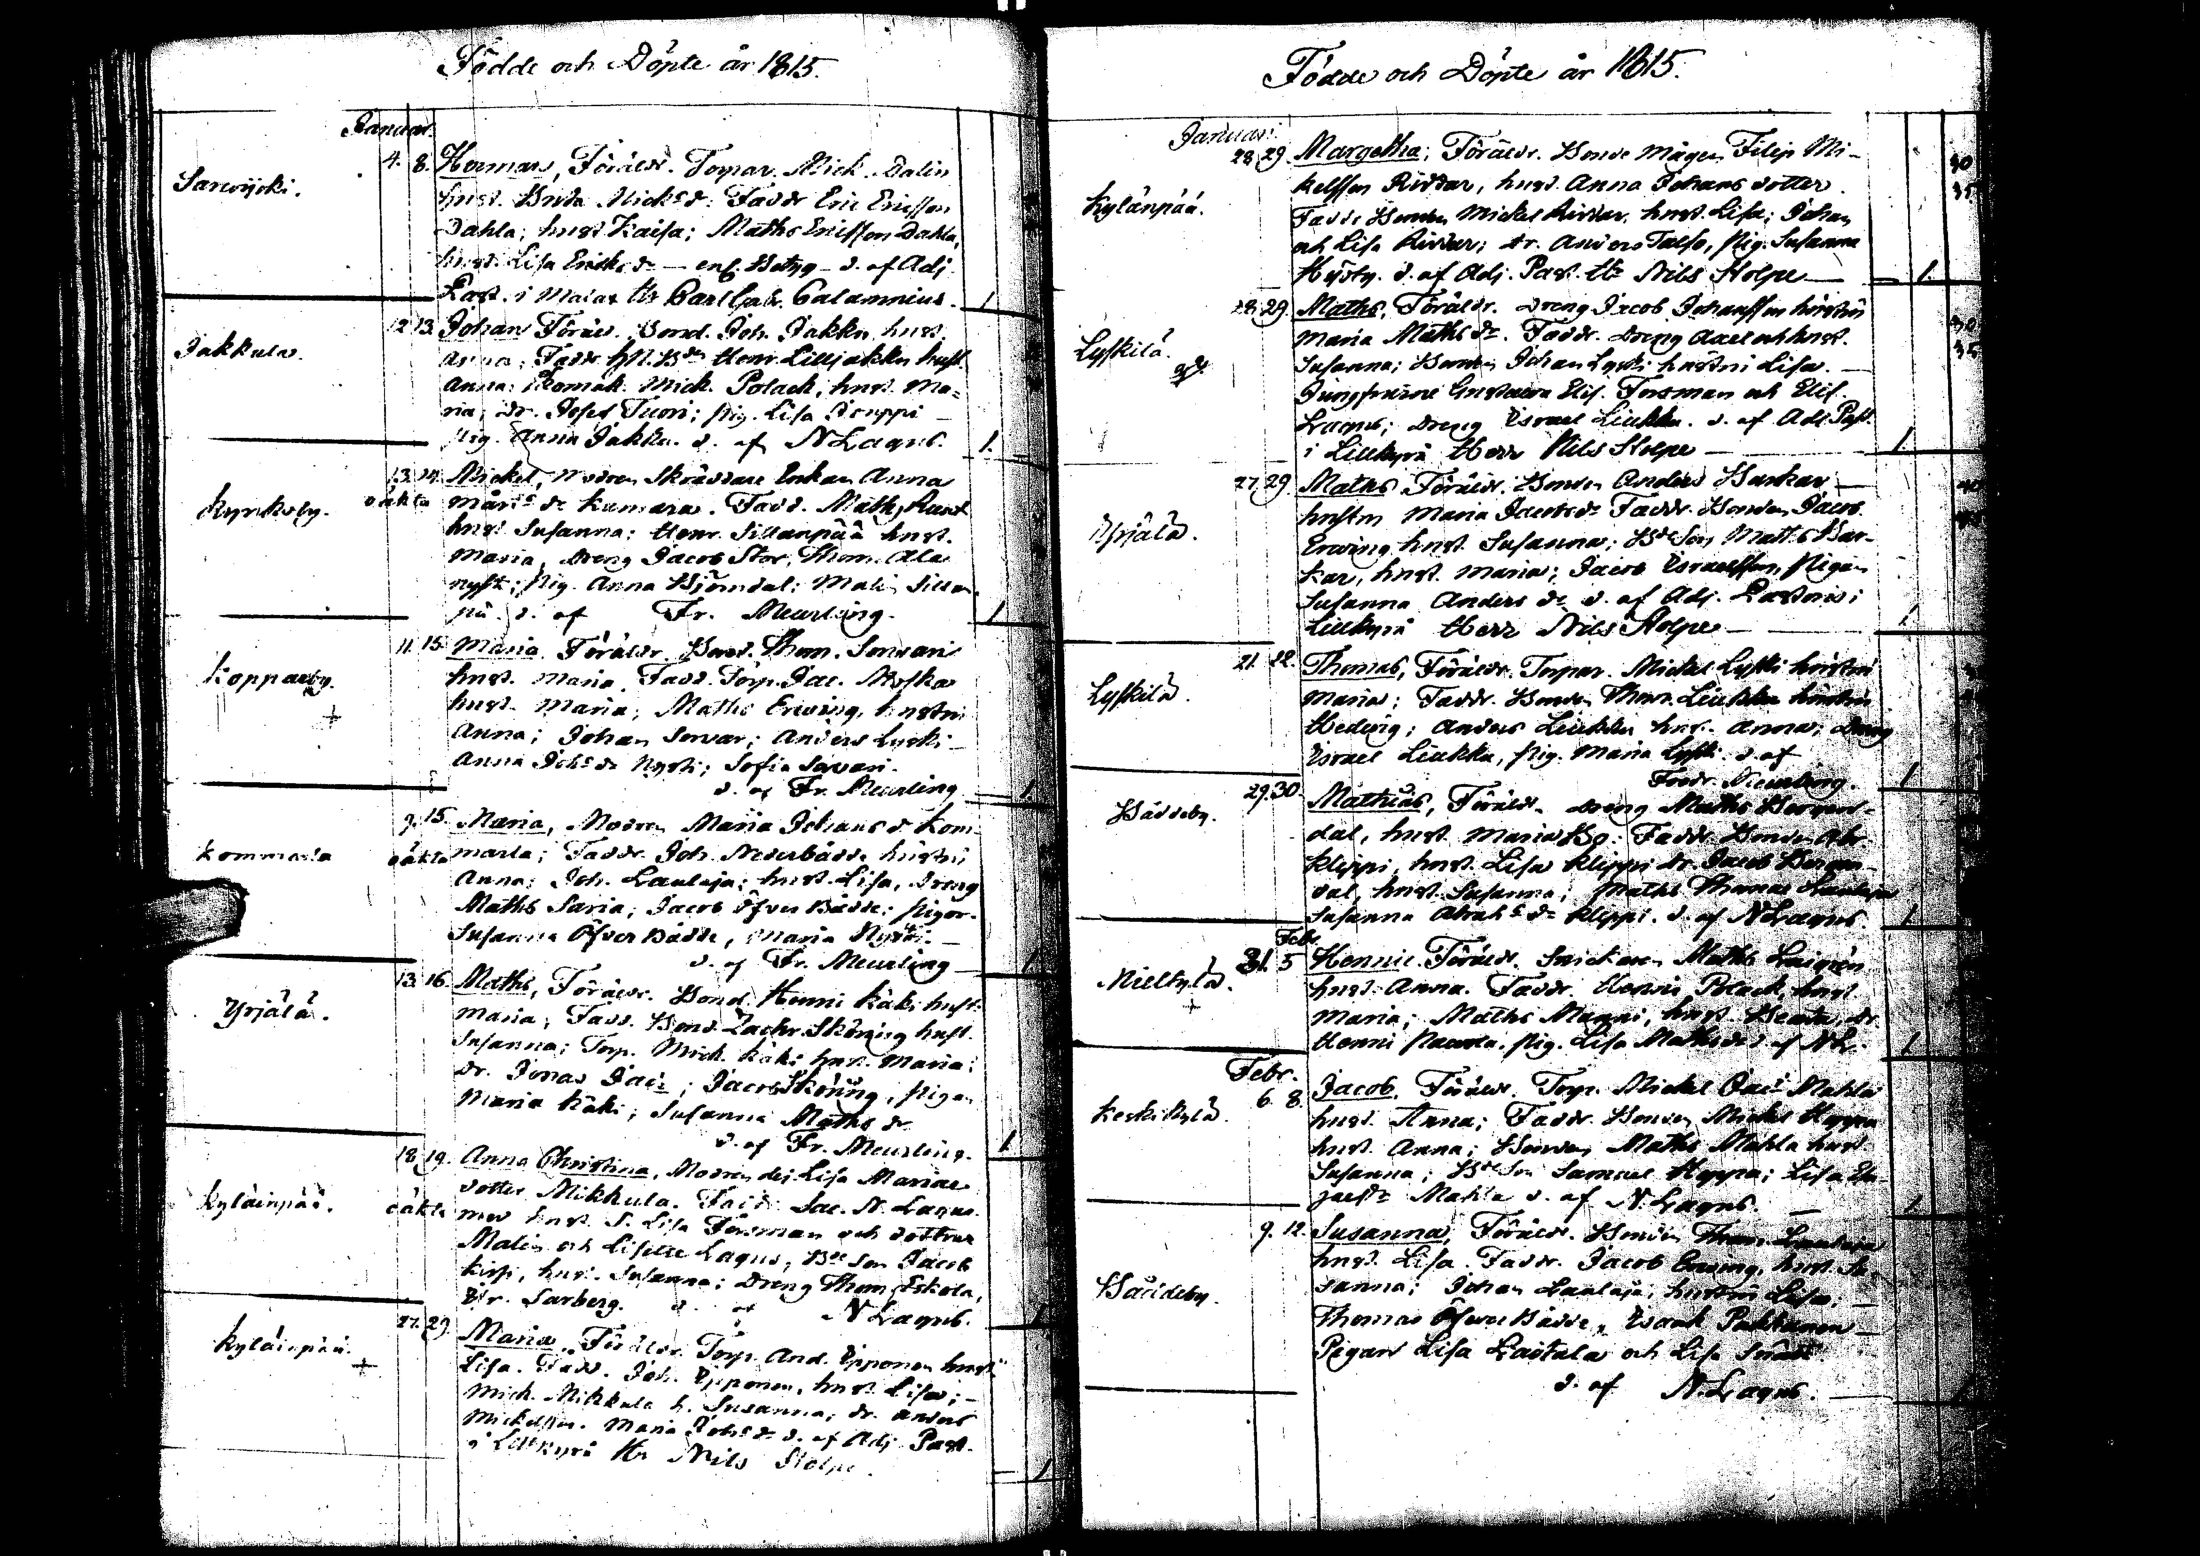 Födde och Döpte år 1815.
Januar.
Sarwijoki.
4. 8. Herman, Föräldr. Torpar. Mick. Dalin
hust. Brita Micksdr. Faddr Eric Ericsson
Dahla; hust. Kaisa; Maths Ericsson Dahla,
hust. Lisa Ericksdr — enl. Betyg — d. af Adj.
Past. i Malax Hr Carl Gabr. Calamnius.
1.
Jakkula.
12. 13. Johan Föräld. Bond. Joh. Jakku hust.
Anna; Faddr Henr. Lilljakku hust.
Anna; Mick. Polack, hust. Ma-
ria; dr. Josef Tuori; pig. Lisa Seuppi
pig. Anna Jakku. d. af N Lagus.
1.
Kyrkoby.
13. 14. Mickel, Modren Skräddare Enkan Anna
oäkta Mårts dr Kumara. Fadd. Maths
hust. Susanna; Henr. Sillanpää hust.
Maria, dreng Jacob Stor, Thom. Ala
pig. Anna Björndal; Malin Sillan-
pä. d. af Fr. Meurling.
1
Kopparby.
+
11. 15. Maria. Föräldr. Bond. Thom. Sorvari
hust. Maria. Fadd. Torp. Jac.
hust. Maria; Maths Erving, hustru
Anna; Johan Sorvar; Anders Lyski
Anna Johs dr Nysti; Sofia Savari.
d. af Fr. Meurling
1
Kommarla
9. 15. Maria, Modren Maria Johans dr Kom-
oäkta marla; Faddr. Joh. Nederbädde hustru
Anna; Joh. Laulaja; hust. Lisa, dreng
Maths Saria; Jacob Öfver Bädde; pigor.
Susanna Öfver Bädde, Maria
d. af Fr. Meurling
1
Yrjälä.
13. 16. Maths, Föräldr. Bond. Henri Käki hust.
Maria; Fadd. Bond. Zachr. Sköring hust.
Susanna; Torp. Mick. Käki hust. Maria;
dr. Jonas Jacs; Jacob Sköring, pigan
Maria Käki; Susanna Maths dr.
d. af Fr. Meurling.
1
Kyläinpää.
18. 19. Anna Christina, Modren Lisa Mariae
oäkta dotter Mikkula. Faddr. Sac. N. Lagus
med hust. S. Lisa Forsman och dottrar
Malin och Lisette Lagus; Bde son Jacob
Kirpi, hust. Susanna; dreng Thom. Eskola,
Sarberg. d. af N Lagus.
1
Kyläinpää.
+
27. 29. Maria, Föräldr. Torp. And. Epponen hust.
Lisa. Fadd. Joh. Epponen, hust. Lisa;
Mich. Mikkula h. Susanna; dr. Anders
Mickelsson. Maria Johs dr d. af Adj. Past.
i Lillkyrå Hr Nils Stolpe.
1
Födde och Döpte år 1815.
Januari.
Kylänpää.
28. 29. Margetha; Föräldr. Bonde Mågen Filip Mi-
kelsson Riddar, hust. Anna Johans dotter.
Faddr Bonden Mickel Riddar, hust. Lisa; Johan
och Lisa Riddar; dr. Anders Talso, pig. Susanna
d. af Adj. Past. Hr Nils Stolpe
1.
40
35
Lyskilä.
28. 29. Maths, Föräldr. Dreng Jacob Johansson hustru
Maria Maths dr. Faddr. Dreng Axel och hust.
Susanna; Bonden Johan Lyski hustru Lisa.
Jungfrurne Gustaava Elis. Forsman och Elis.
Lagus; dreng Esrael Liukku. d. af Adj. Past.
i Lillkyrå Herr Nils Stolpe
1
35
Yrjälä.
27. 29. Maths Föräldr. Bonden Anders Harkar
hustru Maria Jacobs dr Faddr. Bonden Jacob
Erwing hust. Susanna; Bde Son Maths Har-
kar, hust. Maria; Jacob Esraelsson, Pigan
Susanna Anders dr d. af Adj. Pastoris i
Lillkyrå Herr Nils Stolpe
1
Lyskilä.
21. 22. Thomas, Föräldr. Torpar. Mickel Lyski hustru
Maria; Faddr. Bonden Thom. Liukku hustru
Hedvig; Anders Liukku hust. Anna; dreng
Esrael Liukku, pig. Maria Lyski. d. af
Fredr. Meurling.
1
Bäddeby.
29. 30. Mathias, Föräldr. dreng Maths Bergen-
dal, hust. Maria Faddr. Bonden Abr.
Klippi, hust. Lisa Klippi dr. Jacob Bergen-
dal, hust. Susanna; Maths Thomas Laulaja
Susanna Abrahs dr Klippi. d. af N Lagus.
1
Febr.
Nielkylä.
+
31. 5 Hennic. Föräldr. Snickaren Maths
hust. Anna. Faddr. Henric Polack, hust.
Maria; Maths Manni, hust. Beata, dr.
Henri pig. Lisa Maths dr d. af N L.
1
Febr.
Keskikylä.
6. 8. Jacob, Föräldr. Torp. Mickel Jacs Mahla
hust. Anna; Faddr. Bonden Mickel Hyppa
hust. Anna; Bonden Maths Mahla hust.
Susanna; Bde Son Samuel Hyppa; Lisa
Mahla d. af N. Lagus.
1
Bäddeby.
9. 12. Susanna, Föräldr. Bonden Thom. Laulaja
hust. Lisa. Faddr. Jacob Erwing, hust. Su-
sanna; Johan Laulaja, hustru Lisa;
Thomas Öfver Bädde, Esaak Pukkinen
Pigan Lisa Lastala och Lisa
d. af N. Lagus.